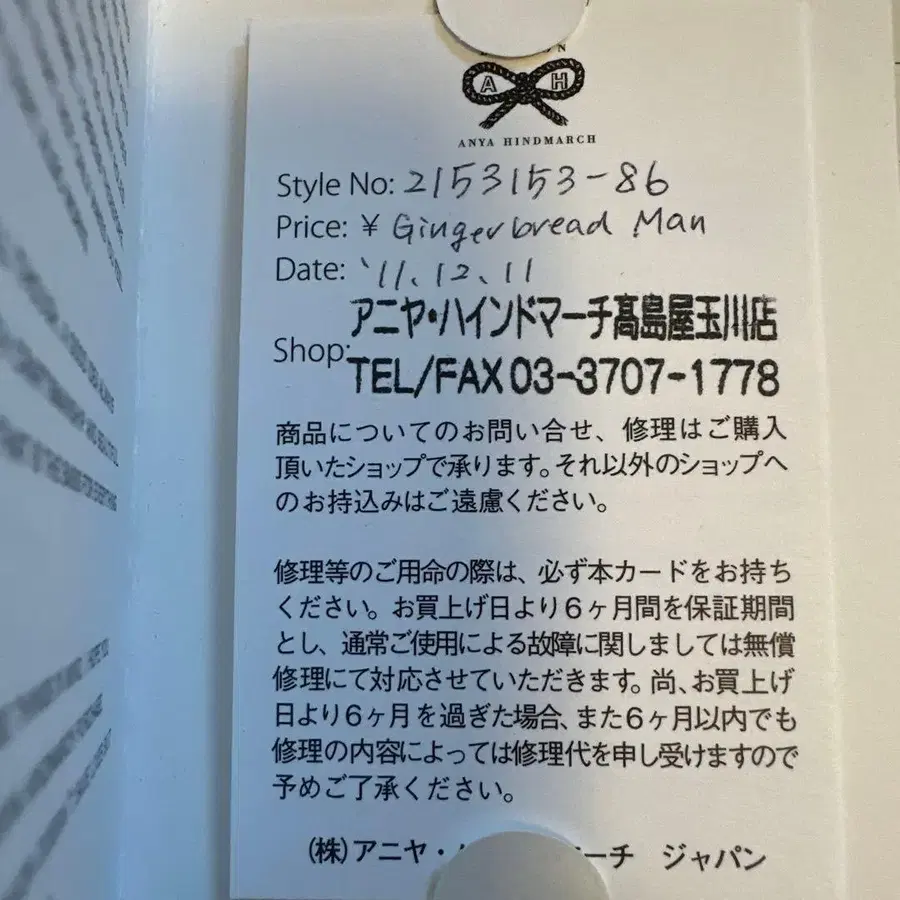 A H
ANYA HINDMARCH
Style No: 2153153-86
Price: ¥ Gingerbread Man
Date: '11.12.11
Shop: アニヤ・ハインドマーチ髙島屋玉川店
TEL/FAX 03-3707-1778
商品についてのお問い合せ、修理はご購入
頂いたショップで承ります。それ以外のショップへ
のお持込みはご遠慮ください。
修理等のご用命の際は、必ず本カードをお持ち
ください。お買上げ日より6ヶ月間を保証期間
とし、通常ご使用による故障に関しましては無償
修理にて対応させていただきます。尚、お買上げ
日より6ヶ月を過ぎた場合、また6ヶ月以内でも
修理の内容によっては修理代を申し受けますので
予めご了承ください。
(株)アニヤ・ ーチ ジャパン